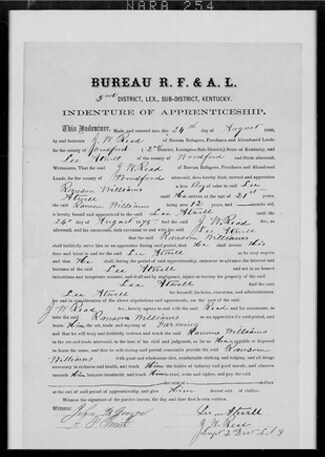 NARA 254
BUREAU R. F. & A. L.
2nd DISTRICT, LEX. SUB-DISTRICT, KENTUCKY.
INDENTURE OF APPRENTICESHIP.
This Indenture, Made and entered into this 24th day of August 1866,
by and between J W Read of Bureau Refugees, Freedmen and Abandoned Lands
for the county of Woodford, (2nd District, Lexington Sub-District,) State of Kentucky, and
Lee Atwell of the county of Woodford and State aforesaid,
Witnesseth, That the said J W Read of Bureau Refugees, Freedmen and Abandoned
Lands, for the county of Woodford aforesaid, does hereby bind, contract and apprentice
Ransom Williams a boy unto said Lee
Atwell until he arrives at the age of 21st years,
the said Ransom Williams being 12 years, and months old,
is hereby bound and apprenticed to the said Lee Atwell until the
24th day of August 1875 and the said J W Read, as
aforesaid, and his successors, doth covenant to and with the said Lee Atwell
that the said Ransom Williams
shall faithfully serve him as an apprentice during said period, that He shall devote His
time and labor to and for the said Lee Atwell to no other person or use
and that He shall, during the period of said apprenticeship, endeavor to advance the interest and
business of the said Lee Atwell and not in an honest
industrious and temperate manner, and shall not by negligence, injure or destroy the property of the said
Lee Atwell And the said
Lee Atwell for himself, his heirs, executors, and administrators,
for and in consideration of the above stipulations and agreements, on the part of the said
J W Read &c., hereby agrees to and with the said Read and his successors, to
take the said Ransom Williams as an apprentice for said period, and
learn Him the art, trade and mystery of Farming
that he will truly and faithfully instruct and teach the said Ransom Williams
in the art and trade aforesaid, to the best of his skill and judgment, so far as He is capable or disposed
to learn the same, and that he will during said period constantly provide the said Ransom
Williams with good and wholesome diet, comfortable clothing and lodging, and all things
necessary in sickness and health, and teach Him the habits of industry and good morals, and observe
towards Him humane treatment, and teach Him read, write and cipher, and pay the said
at the end of said period of apprenticeship, and give Him decent suit of clothes.
Witness the signature of the parties hereto, the day and date first herein written.
Witness:
Lee Atwell
J. W. Read